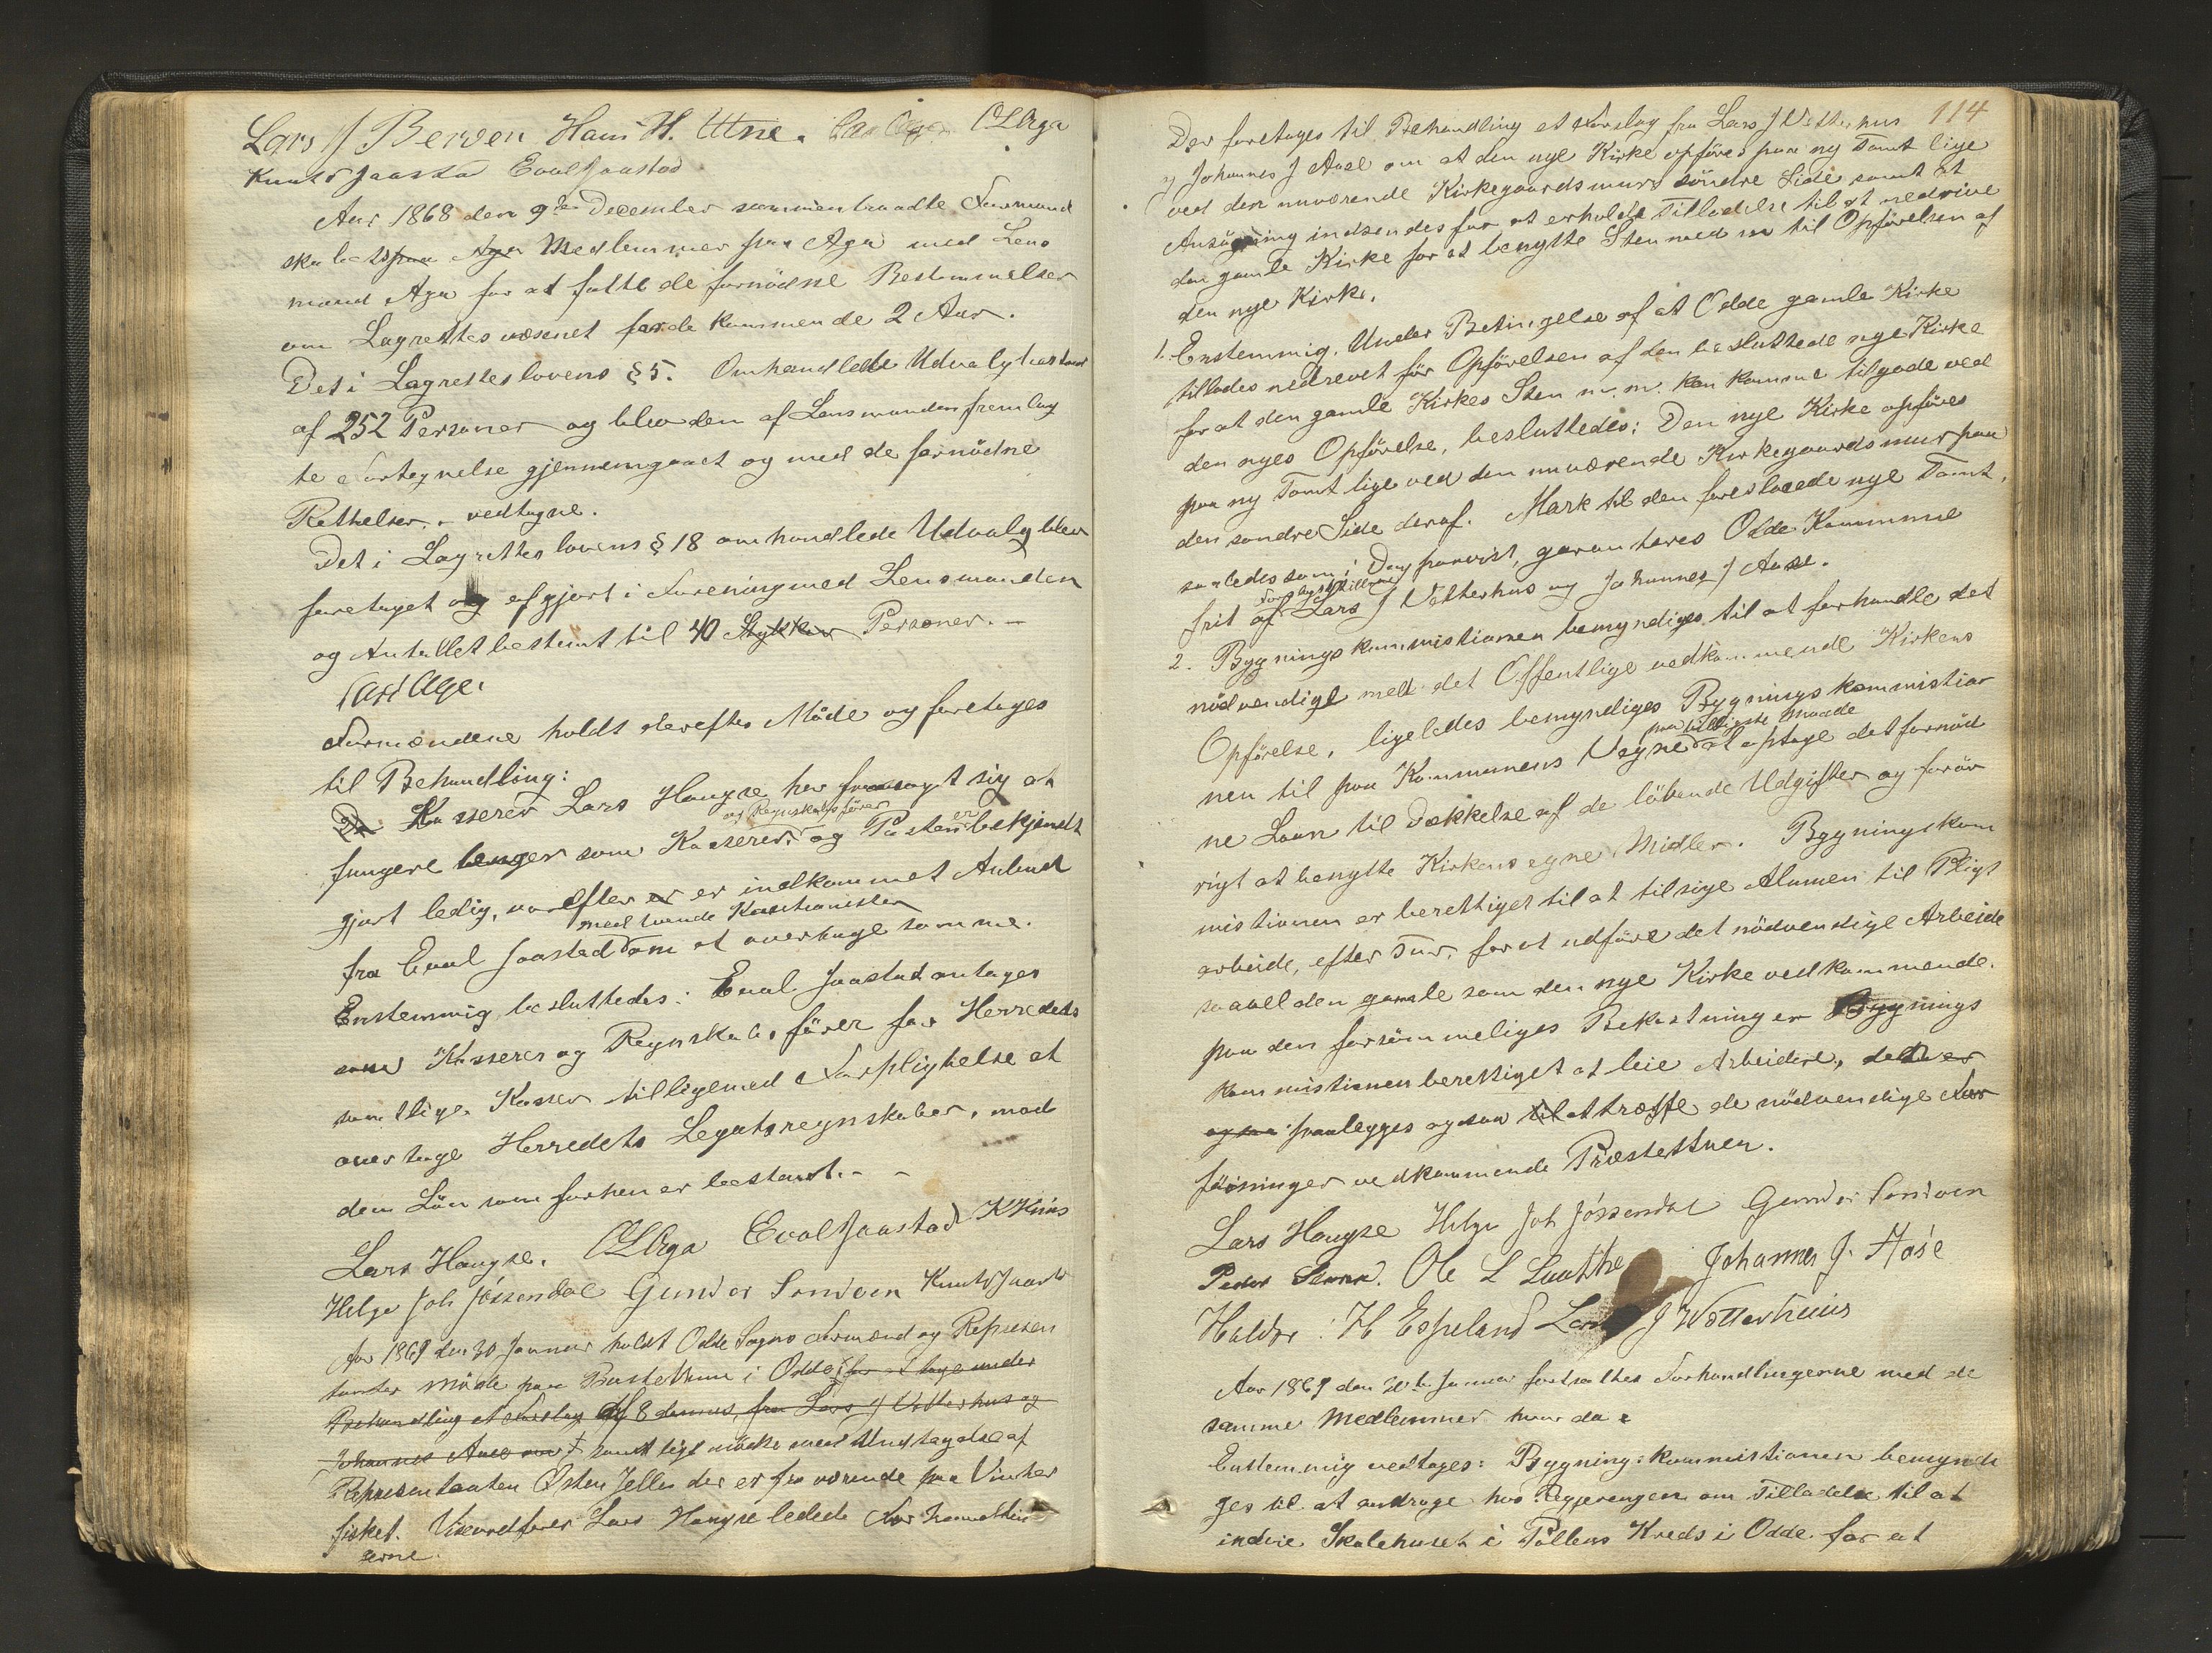 Lars J Berven Hans H. Utne. OLAga
Knut Jaastad Eval Jaastad
Aar 1868 den 9de December sammentraadte Formand
skabets paa Aga Medlemmer paa Aga med Lens
mand Aga for at fatte de fornödne Bestemmelser
om Lagrettesvæsenet for de kommende 2 Aar.
Det i Lagretteslovens § 5. Omhandlede Udvalg bestaar
af 252 Personer og blev den af Lensmanden fremlag
te Fortegnelse gjennemgaaet og med de fornödne
Rettelser - vedtagne.
Det i Lagretteslovens § 18 omhandlede Udvalg blev
foretaget og afgjort i Forening med Lensmanden
og Antallet bestemt til 40 Stykker Personer. -
Lars Aga.
Formændene holdt derefter Möde og foretages
til Behandling:
Da Kasserer Lars Haugse har frasagt sig at
og Regnskabsförer
fungere længer som Kasserer og Posten er bekjendt
gjort ledig, vorefter er er indkommet Anbud
med tvende Kautionister
fra Eval Jaastad om at overtage samme.
Enstemmig besluttedes: Eval Jaastad antages
som Kasserer og Regnskabsförer for Herredets
samtlige Kasser tilligemed Forpligtelse at
overtage Herredets Legatsregnskaber, mod
den Lön som forhen er bestemt. - -
Lars Haugse. OLAga Eval Jaastad
Helge Joh Jösendal Gunder Sandven Knut Jaastad
Aar 1869 den 30 Januar holdt Odde Sogns Formænd og Represen
tanter Möde paa Præstettuen i Odde for at tage under
Behandling et Forslag af 8 dennes, fra Lars J Vetterhus og
Johannes Aase om samtlige mödte med Undtagelse af
Representanten Osten Jelle der er fraværende paa Vinter
fisket. Viseordförer Lars Haugse ledede Forhandlin
gerne.
114
Der foretages til Behandling et Forslag fra Lars J Vetterhus
og Johannes J Aase om at den nye Kirke opföres paa ny Tomt lige
ved den nuværende Kirkegaardsmurs söndre Side samt at
Ansögning indsendes for at erholde Tilladelse til at nedrive
den gamle Kirke for at benytte Sten med m til Opförelsen af
den nye Kirke.
1. Enstemmig. Under Betingelse af at Odde gamle Kirke
tillades nedrevet för Opförelsen af den besluttede nye Kirke
for at den gamle Kirkes Sten m. m. kan komme tilgode ved
den nyes Opförelse, besluttedes: Den nye Kirke opföres
paa ny Tomt lige ved den nuværende Kirkegaardsmur paa
den söndre Side deraf. Mark til den foreslaaede nye Tomt,
saaledes som i Dag paavist, garanteres Odde Kommune
Forslagstillerne
frit af Lars J Vetterhus og Johannes J Aase.
2. Bygningskommistionen bemyndiges til at forhandle det
nödvendige med det Offentlige vedkommende Kirkens
Opförelse, ligeledes bemyndiges Bygningskommistio
paa billigste Maade
nen til paa Kommunens Vegne at optage det fornöd
ne Laan til Dækkelse af de löbende Udgifter og forör
rigt at benytte Kirkens egne Midler. Bygningskom
mistionen er berettiget til at tilsige Almuen til Pligt
arbeide, efter Tur, for at udföre det nödvendige Arbeide
saavel den gamle som den nye Kirke vedkommende.
paa den forsömmeliges Bekostning er Bygnings
kommistionen berettiget at leie Arbeidere, det er
ogsaa paalegges ogsaa til at træffe de nödvendige For
föininger vedkommende Præstettuen.
Lars Haugse Helge Joh Jösendal Gunder Sandven
Peder Ole L Laatthe Johannes J. Aase
Haldor H Espeland Lars J Wetterhuus
Aar 1869 den 30te Januar fortsattes Forhandlingerne med de
samme Medlemmer hvor da
Enstemmig vedtages: Bygningskommistionen bemyndi
ges til at andrage hos Regjeringen om Tilladelse til at
indvie Skolehuset i Tollens Kreds i Odde for at